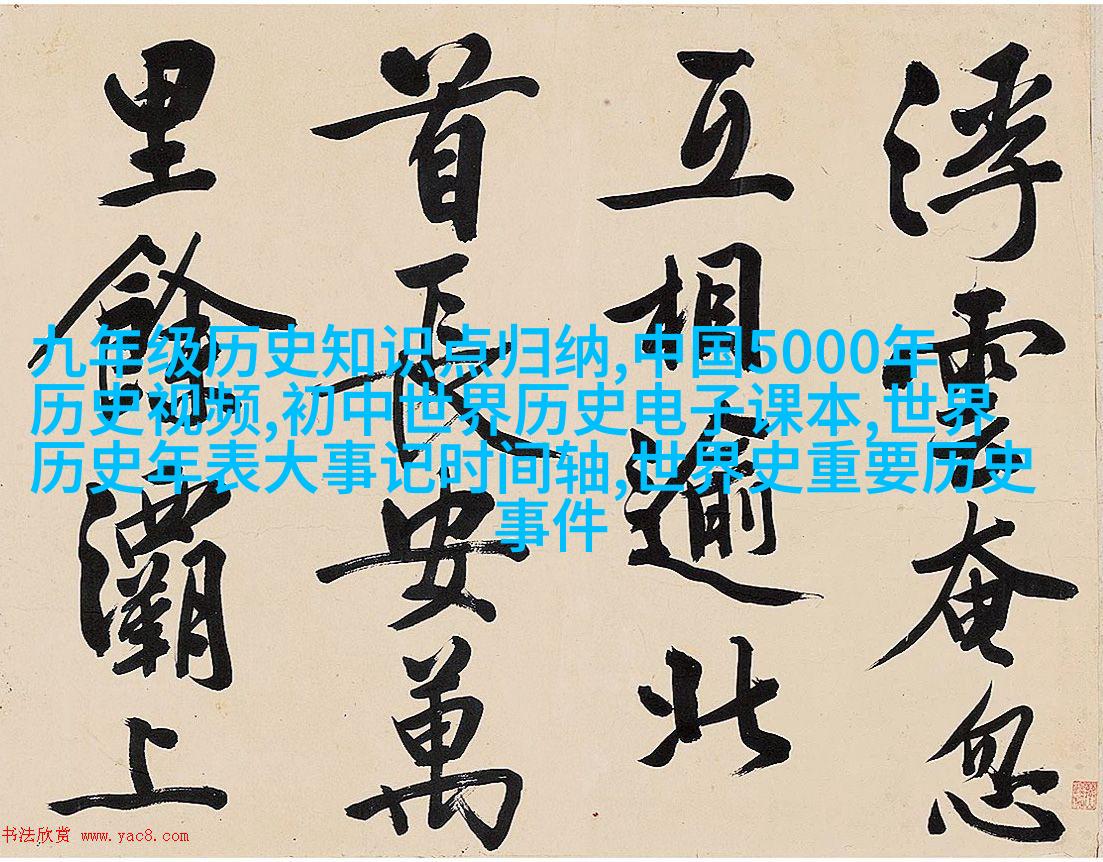 浮雲奄忽
互相逾北
首長安萬
里餘灞上
九年级历史知识点归纳,中国5000年
历史视频,初中世界历史电子课本,世界
历史年表大事记时间轴,世界史重要历史
事件
书法欣赏 www.yac8.com